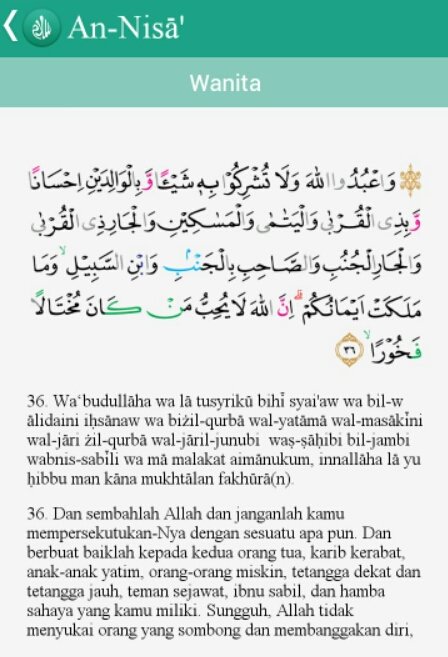 An-Nisā'
Wanita
وَاعْبُدُوا اللّٰهَ وَلَا تُشْرِكُوْا بِهٖ شَيْـًٔا وَّبِالْوَالِدَيْنِ اِحْسَانًا
وَّبِذِى الْقُرْبٰى وَالْيَتٰمٰى وَالْمَسٰكِيْنِ وَالْجَارِ ذِى الْقُرْبٰى
وَالْجَارِ الْجُنُبِ وَالصَّاحِبِ بِالْجَنْۢبِ وَابْنِ السَّبِيْلِۙ وَمَا
مَلَكَتْ اَيْمَانُكُمْ ۗ اِنَّ اللّٰهَ لَا يُحِبُّ مَنْ كَانَ مُخْتَالًا
فَخُوْرًاۙ ٣٦
36. Wa‘budullāha wa lā tusyrikū bihī syai'aw wa bil-w
ālidaini iḥsānaw wa biżil-qurbā wal-yatāmā wal-masākīni
wal-jāri żil-qurbā wal-jāril-junubi waṣ-ṣāḥibi bil-jambi
wabnis-sabīli wa mā malakat aimānukum, innallāha lā yu
ḥibbu man kāna mukhtālan fakhūrā(n).
36. Dan sembahlah Allah dan janganlah kamu
mempersekutukan-Nya dengan sesuatu apa pun. Dan
berbuat baiklah kepada kedua orang tua, karib kerabat,
anak-anak yatim, orang-orang miskin, tetangga dekat dan
tetangga jauh, teman sejawat, ibnu sabil, dan hamba
sahaya yang kamu miliki. Sungguh, Allah tidak
menyukai orang yang sombong dan membanggakan diri,